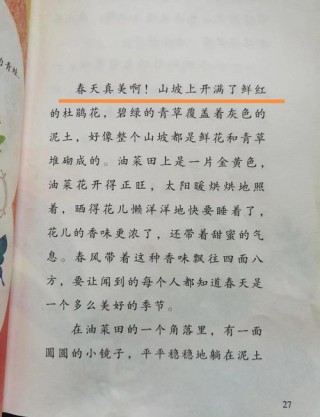 的青蛙，
春天真美啊！山坡上开满了鲜红
的杜鹃花，碧绿的青草覆盖着灰色的
泥土，好像整个山坡都是鲜花和青草
堆砌成的。油菜田上是一片金黄色，
油菜花开得正旺，太阳暖烘烘地照
着，晒得花儿懒洋洋地快要睡着了，
花儿的香味更浓了，还带着甜蜜的气
息。春风带着这种香味飘往四面八
方，要让闻到的每个人都知道春天是
一个多么美好的季节。
在油菜田的一个角落里，有一面
圆圆的小镜子，平平稳稳地躺在泥土
27